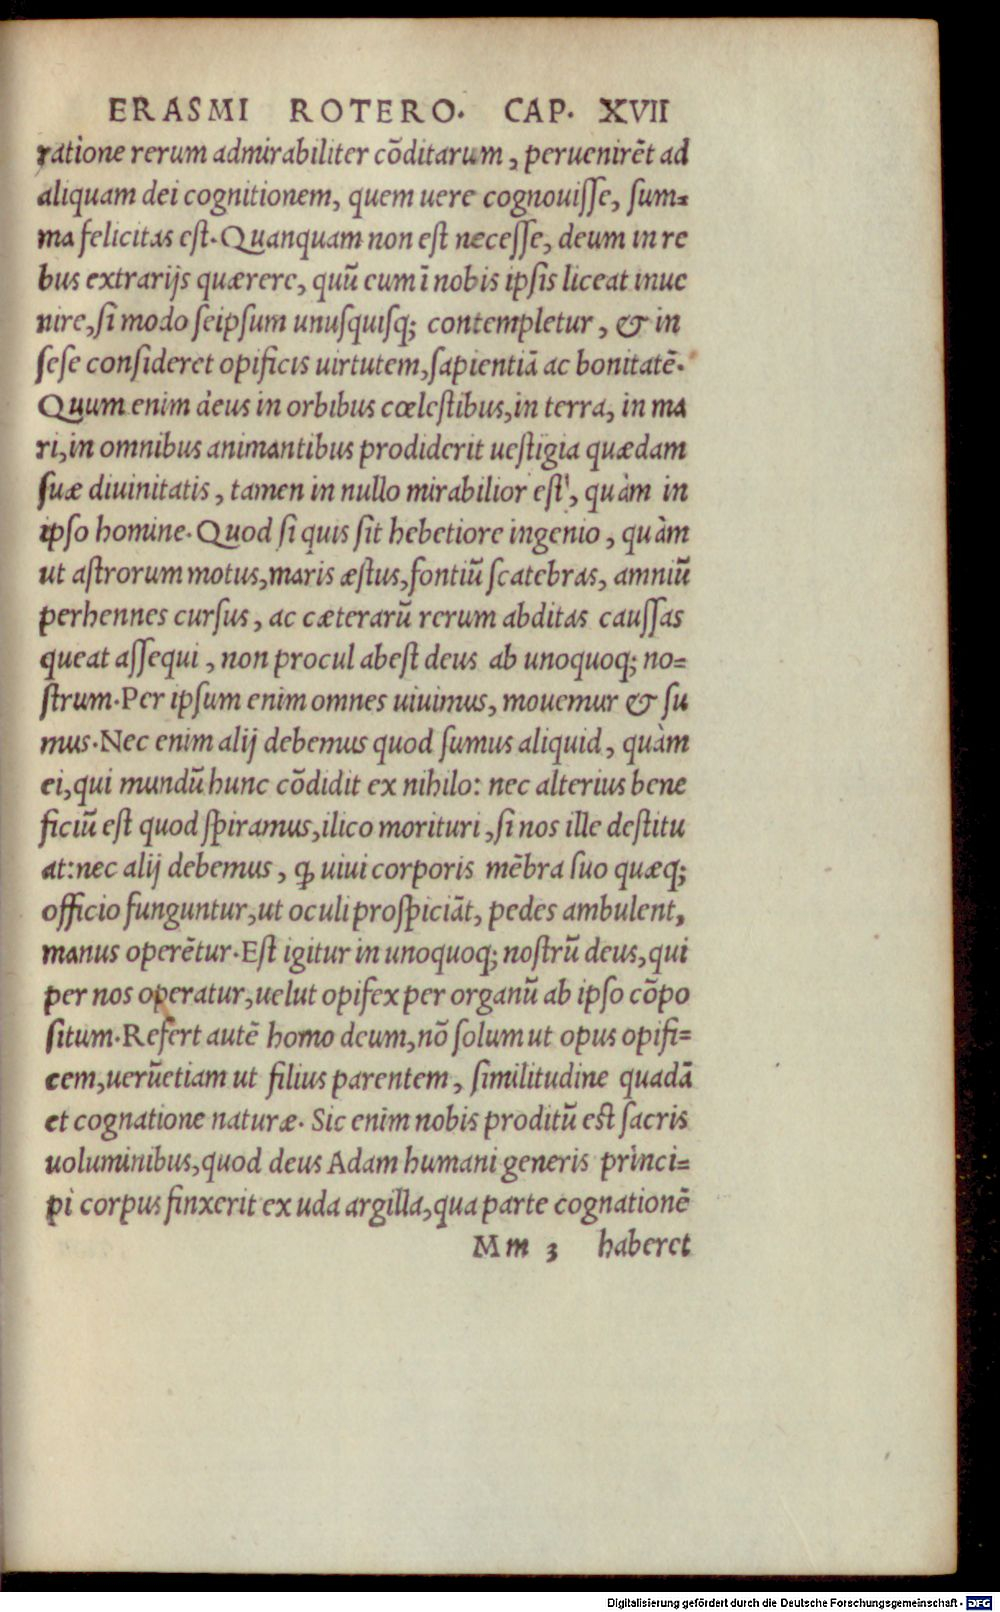 ERASMI ROTERO. CAP. XVII
ratione rerum admirabiliter cõditarum, peruenirẽt ad
aliquam dei cognitionem, quem uere cognouiſſe, ſum=
ma felicitas eſt. Quanquam non eſt neceſſe, deum in re
bus extrarijs quærere, quũ eum ĩ nobis ipſis liceat inue
nire, ſi modo ſeipſum unuſquiſq; contempletur, & in
ſeſe conſideret opificis uirtutem, ſapientiã ac bonitatẽ.
Quum enim deus in orbibus cœleſtibus, in terra, in ma
ri, in omnibus animantibus prodiderit ueſtigia quædam
ſuæ diuinitatis, tamen in nullo mirabilior eſt, quàm in
ipſo homine. Quod ſi quis ſit hebetiore ingenio, quàm
ut aſtrorum motus, maris æſtus, fontiũ ſcatebras, amniũ
perhennes curſus, ac cæterarũ rerum abditas cauſſas
queat aſſequi, non procul abeſt deus ab unoquoq; no=
ſtrum. Per ipſum enim omnes uiuimus, mouemur & ſu
mus. Nec enim alij debemus quod ſumus aliquid, quàm
ei, qui mundũ hunc cõdidit ex nihilo: nec alterius bene
ficiũ eſt quod ſpiramus, ilico morituri, ſi nos ille deſtitu
at: nec alij debemus, ꝙ uiui corporis mẽbra ſuo quæq;
officio funguntur, ut oculi proſpiciãt, pedes ambulent,
manus operẽtur. Eſt igitur in unoquoq; noſtrũ deus, qui
per nos operatur, uelut opifex per organũ ab ipſo cõpo
ſitum. Refert autẽ homo deum, nõ ſolum ut opus opifi=
cem, uerũetiam ut filius parentem, ſimilitudine quadã
et cognatione naturæ. Sic enim nobis proditũ eſt ſacris
uoluminibus, quod deus Adam humani generis princi=
pi corpus finxerit ex uda argilla, qua parte cognationẽ
Mm 3 haberet
Digitalisierung gefördert durch die Deutsche Forschungsgemeinschaft - DFG